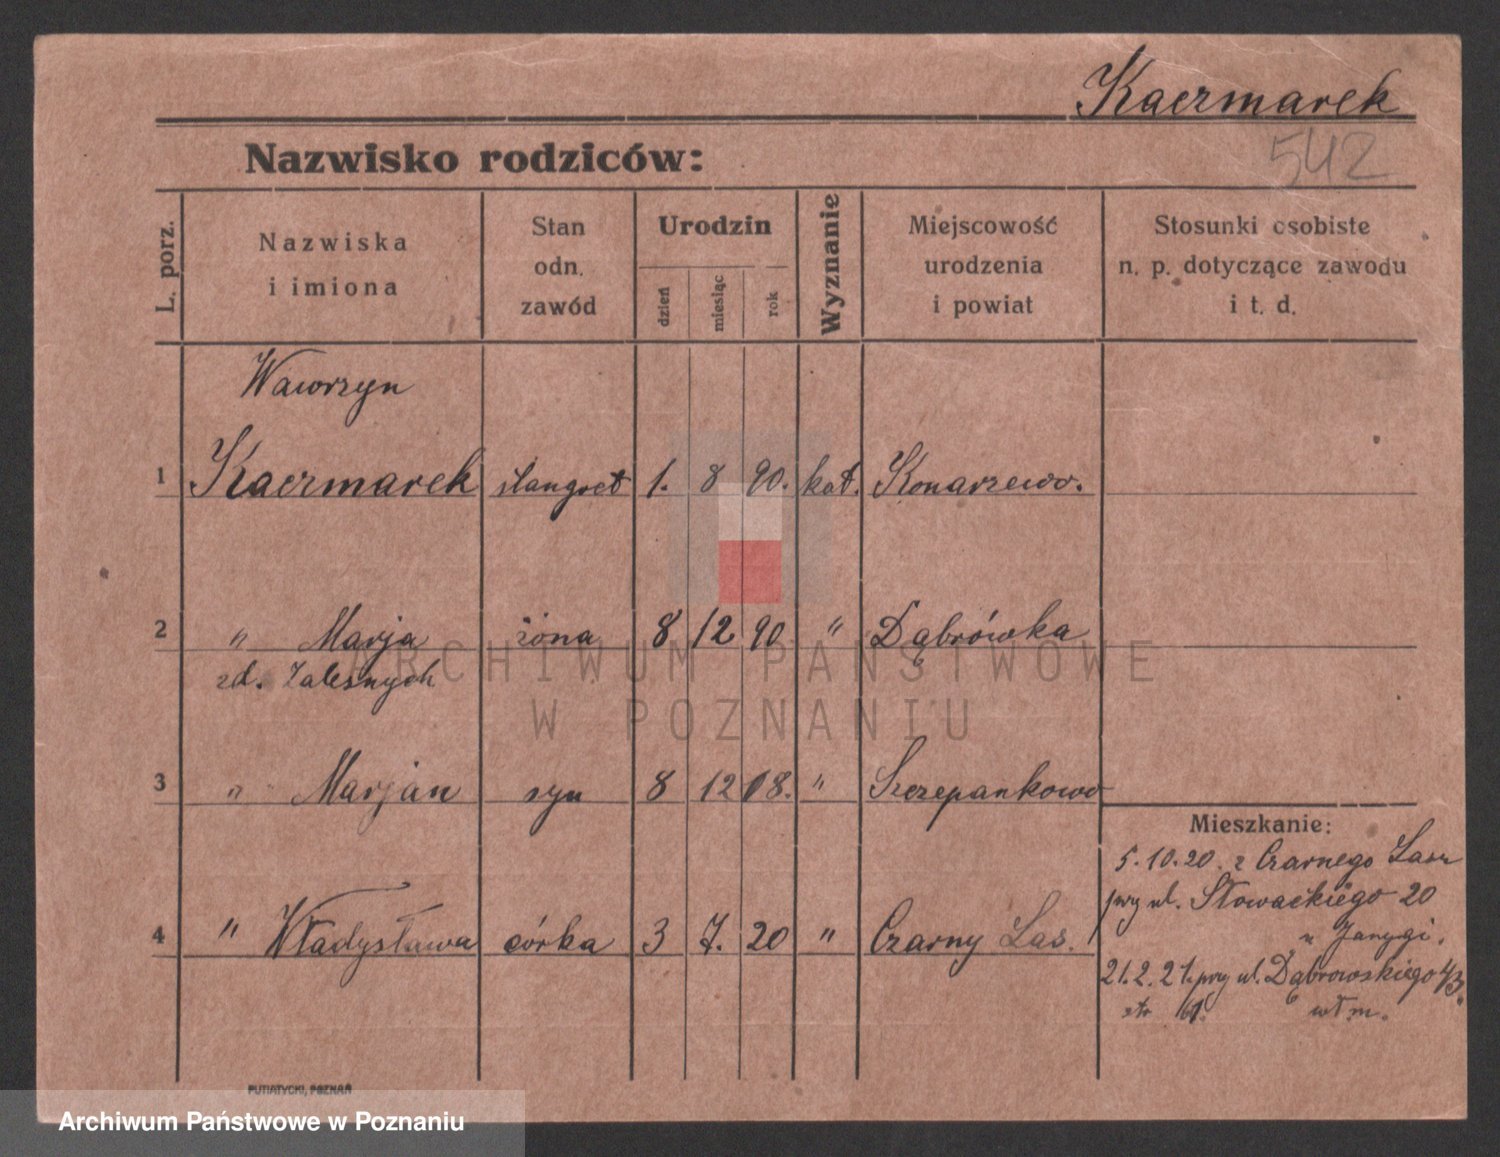 Kaczmarek
542
Nazwisko rodziców:
L. porz.
Nazwiska
i imiona
Stan
odn.
zawód
Urodzin
dzień
miesiąc
rok
Wyznanie
Miejscowość
urodzenia
i powiat
Stosunki osobiste
n. p. dotyczące zawodu
i t. d.
Wawrzyn
1 Kaczmarek stangret 1. 8 90. kat. Konarzewo.
2 " Marja żona 8 12 90 " Dąbrówka
zd. Zalesnych
3 " Marjan syn 8 12 18. " Szczepankowo
Mieszkanie:
5.10.20. z Czarnego Lasu
przy ul. Słowackiego 20
u
4 " Władysława córka 3 7. 20 " Czarny Las.
21.2.21. przy ul. Dąbrowskiego
wł m.
PUTIATYCKI, POZNAŃ
ARCHIWUM PAŃSTWOWE
W POZNANIU
Archiwum Państwowe w Poznaniu